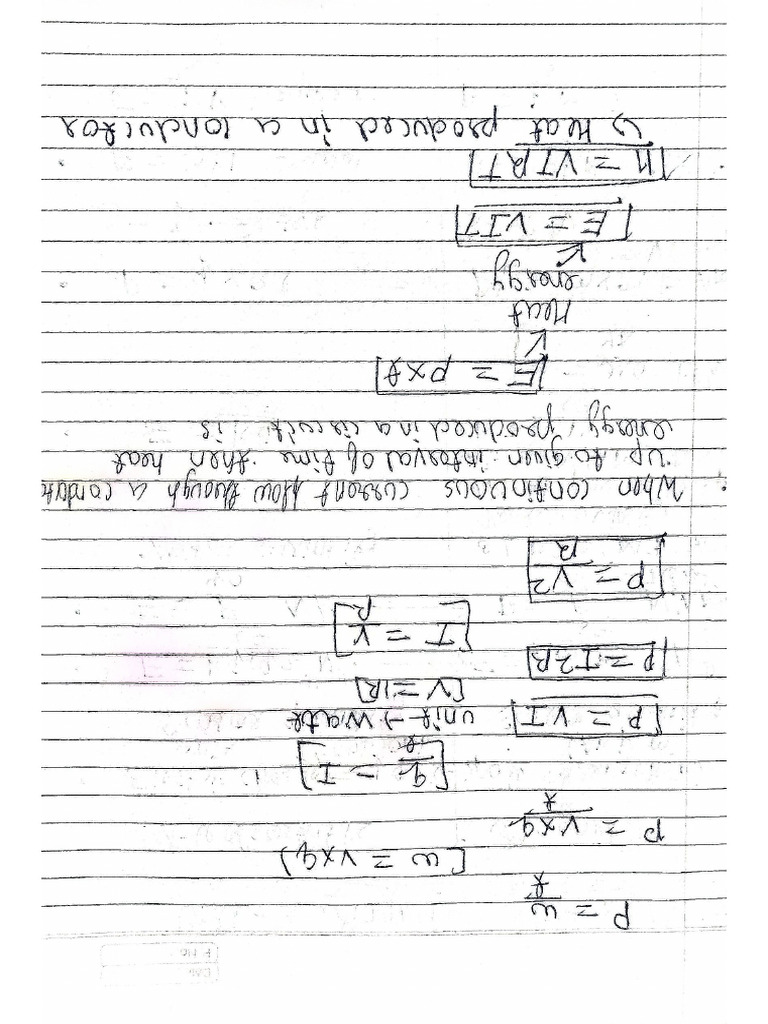 P = w/t
[w = v×q]
P = v×q/t
[q/t = I]
P = VI unit → watt
[V = IR]
P = I2R
[I = V/R]
P = V2/R
. When continuous current flow through a conduct
up to given interval of time then heat
energy produced in a circuit is
E = P×t
Heat
energy
E = VIT
H = VIRT
↳ Heat produced in a conductor